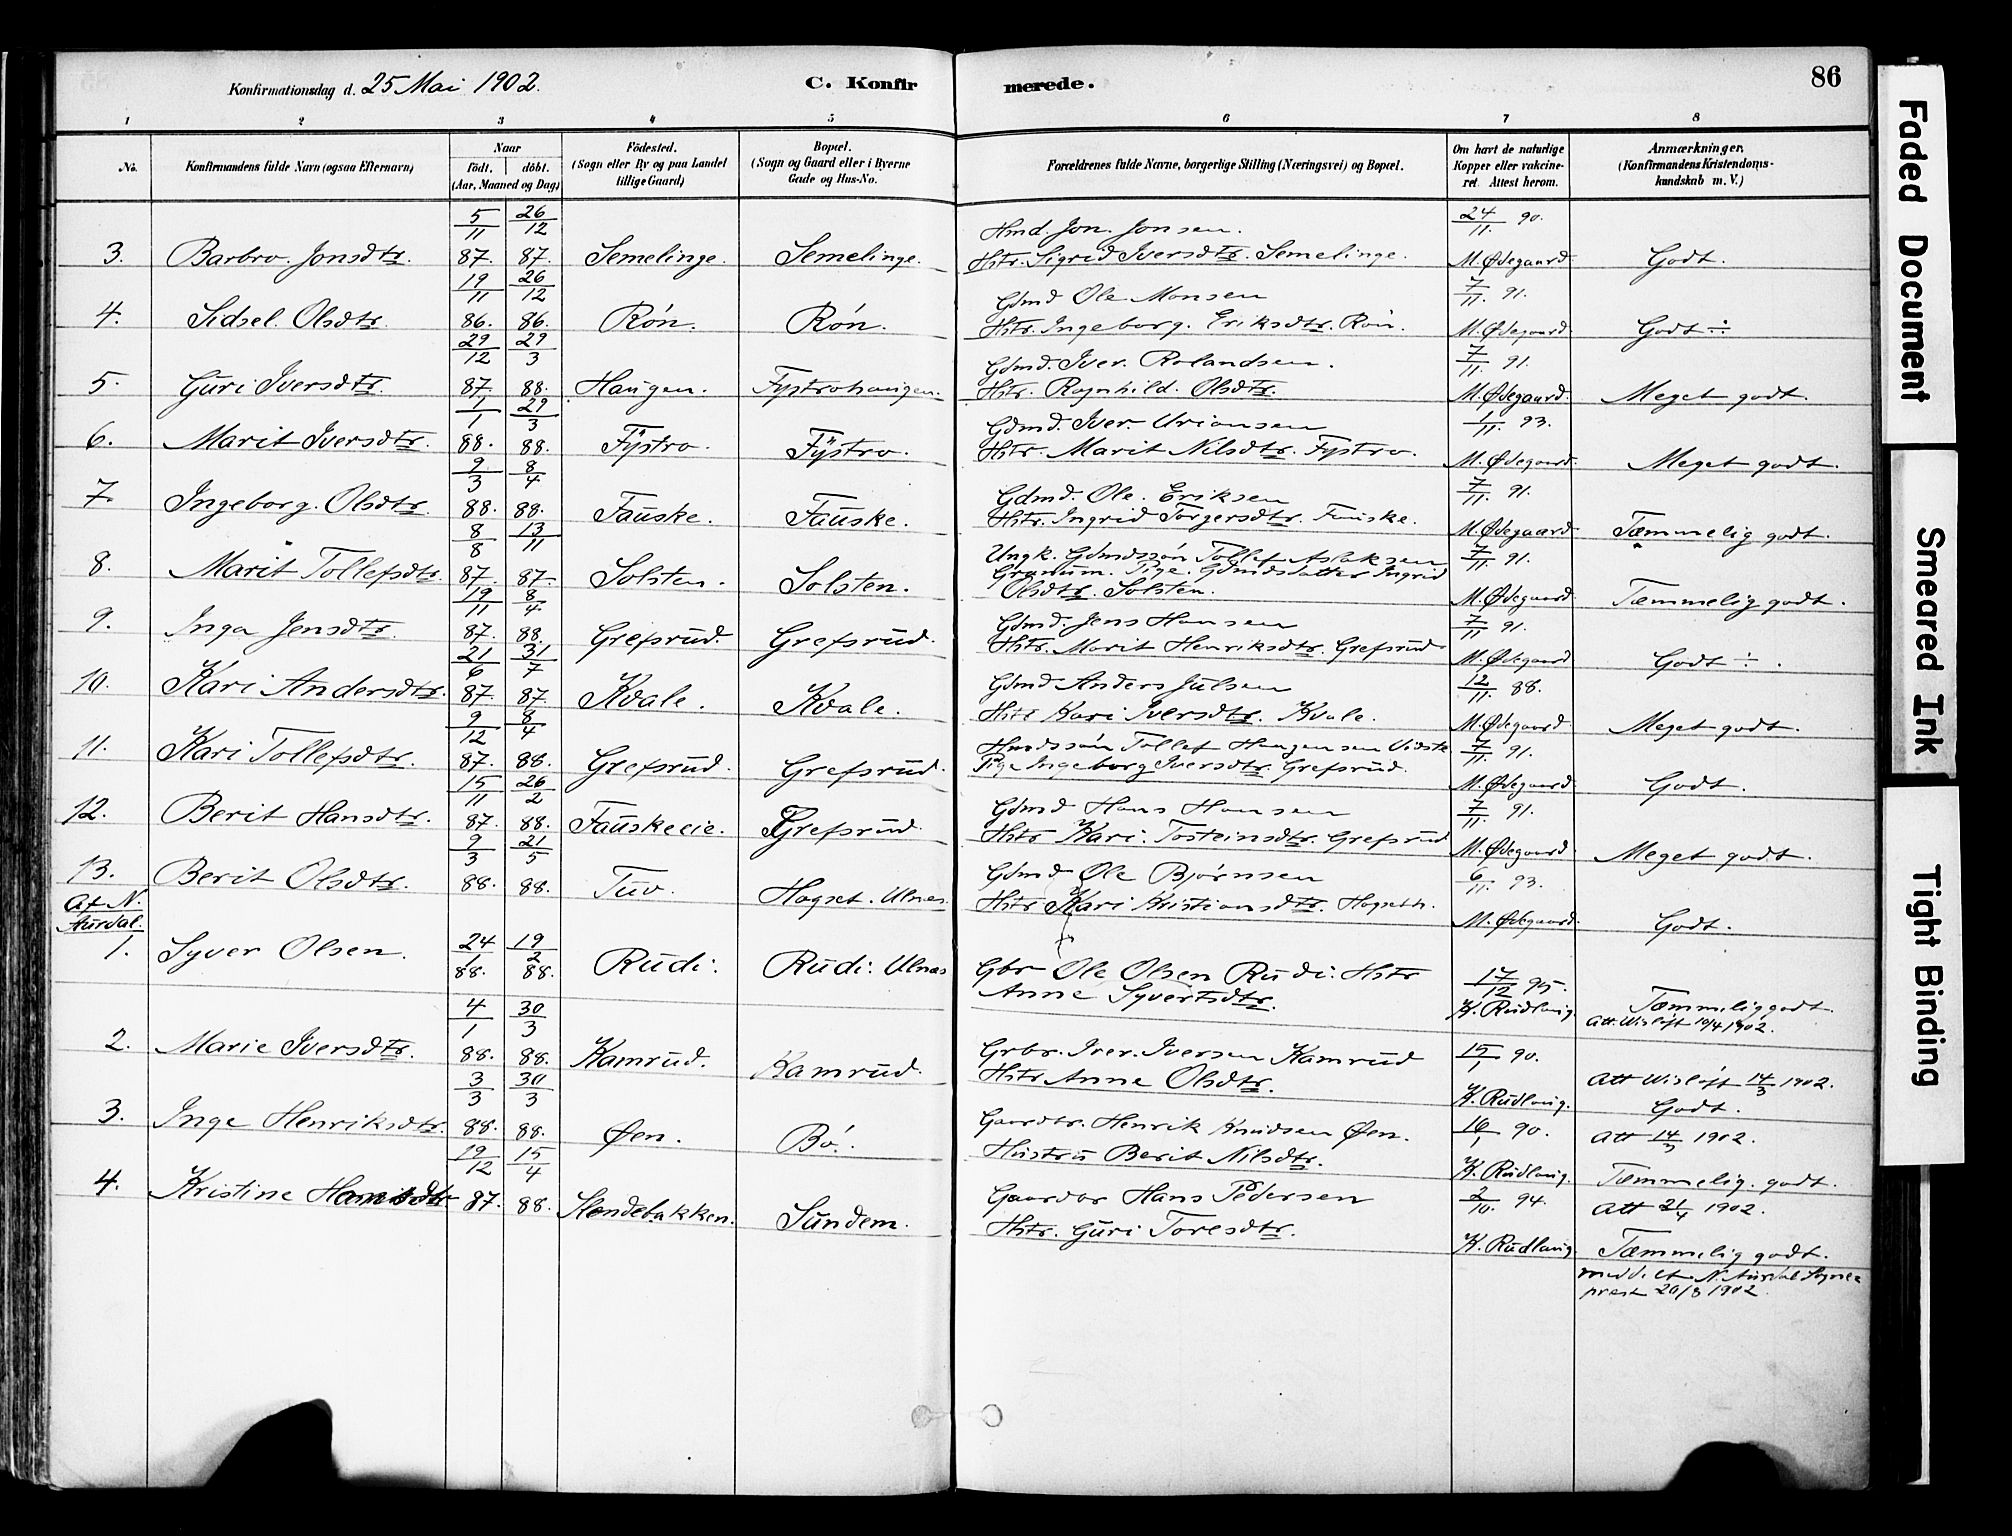 Konfirmationsdag d. 25 Mai 1902. C. Konfirmerede. 86
1 2 3 4 5 6 7 8
No. Konfirmandens fulde Navn (ogsaa Efternavn) Naar født. døbt. (Aar, Maaned og Dag) Fødested. (Sogn eller By og paa Landet tillige Gaard) Bopæl. (Sogn og Gaard eller i Byerne Gade og Hus-No. Forældrenes fulde Navne, borgerlige Stilling (Næringsvei) og Bopæl. Om havt de naturlige Kopper eller vakcineret. Attest herom. Anmærkninger. (Konfirmandens Kristendomskundskab m. V.)
5/11 26/12 Hmd. Jon Jonsen. 24/11. 90.
3. Barbro. Jonsdtr. 87. 87. Semelinge. Semelinge. Hstr. Sigrid Iversdtr. Semelinge. M. Ødegaard. Godt.
19/11 26/12 Gdmd Ole Monsen 7/11. 91.
4. Sidsel. Olsdtr. 86. 86. Røn. Røn. Hstr. Ingeborg. Eriksdtr. Røn. M. Ødegaard Godt ÷
29/12 29/3 Gdmd. Iver. Rolandsen. 7/11 91.
5. Guri Iversdtr. 87. 88. Haugen. Fystrohaugen. Hstr. Ragnhild. Olsdtr. M. Ødegaard. Meget godt.
1/1 29/3 Gdmd. Iver Urionsen 1/11. 93.
6. Marit Iversdtr. 88. 88. Fystro. Fystro. Hstr. Marit Nilsdtr. Fystro. M. Ødegaard. Meget godt.
9/3 8/4 Gdmd. Ole. Eriksen 7/11. 91.
7. Ingeborg. Olsdtr. 88. 88. Fauske. Fauske. Hstr. Ingrid Torgersdtr. Fauske. M. Ødegaard Tæmmelig godt.
8/8 13/11 Ungk. Gdmdssøn Tollef Aslaksen 7/11. 91.
Granum. Pige. Gdmdsdatter Ingrid
8. Marit Tollefsdtr. 87. 87. Solsten. Solsten. Olsdtr. Solsten. M. Ødegaard Tæmmelig godt.
19/11 8/4 Gdmd. Jens Hansen 7/11 91.
9. Inga Jensdtr. 87. 88. Grefsrud. Grefsrud. Hstr. Marit Henriksdtr. Grefsrud M. Ødegaard Godt ÷.
21/6 31/7 Gdmd Anders Julsen 12/11. 88.
10. Kari Andersdtr. 87. 87. Kvale. Kvale. Hstr Kari Iversdtr. Kvale. M. Ødegaard. Meget godt.
9/12 8/4 Hmdssøn Tollef Haugensen 7/11. 91.
11. Kari Tollefsdtr. 87. 88. Grefsrud. Grefsrud. Pige Ingeborg Iversdtr. Grefsrud. M. Ødegaard. Godt.
15/11 26/2 Gdmd Hans Hansen 7/11. 91.
12. Berit Hansdtr. 87. 88. Fauskeeie. Grefsrud. Hstr Kari. Tosteinsdtr. Grefsrud M. Ødegaard. Meget godt.
9/3 21/5 Gdmd Ole Bjørnsen 6/11. 93.
13. Berit Olsdtr. 88. 88. Tuv. Hagset. Ulnes. Hstr Kari Kristiansdtr. Hagseth. M. Ødegaard. Godt.
Af N. Aurdal.
1. Syver Olsen. 24/1 88. 19/2 88. Rudi. Rudi. Ulnes Gbr Ole Olsen Rudi. Hstr 17/12 95.
Anne Syvertsdtr. K. Rudlang. Tæmmelig godt.
Att. Wisløft 10/4 1902.
4/1 30/3
2. Marie Iversdtr. 88. 88. Kamrud. Kamrud. Grbr. Iver. Iversen Kamrud 15/1 90.
Hstr Anne Olsdtr. K. Rudlang. Att Wisløft 14/3 1902.
Godt.
3/3 30/3
3. Inge Henriksdtr. 88. 88. Øen. Bø. Gaardbr. Henrik Knudsen Øen. 16/1 90. Att 14/3 1902.
Hustru Berit Nilsdtr. K. Rudlang. Tæmmelig. godt.
19/12 15/4
4. Kristine Hansdtr 87. 88. Stendebakken. Sundem. Gaardbr Hans Pedersen 2/10. 94. Att 21/4 1902.
Hstr. Guri Toresdtr. K. Rudlang Tæmmelig godt.
medd. N. Aurdal Sogne
prest 20/8 1902.
Faded Document
Smeared Ink
Tight Binding